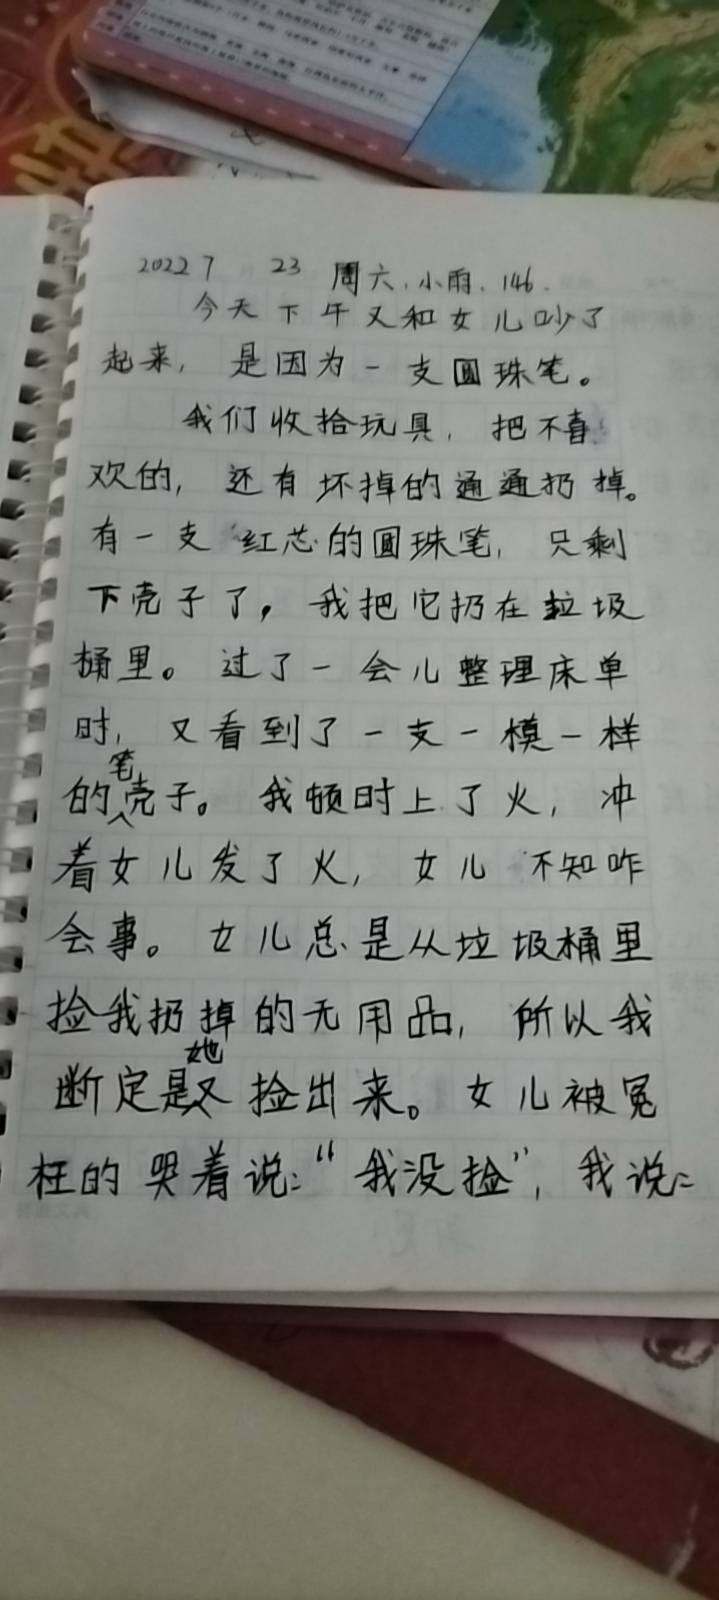 2022 7 23 周六.小雨.146.
今天下午又和女儿吵了
起来,是因为一支圆珠笔。
我们收拾玩具,把不喜
欢的,还有坏掉的通通扔掉。
有一支红芯的圆珠笔,只剩
下壳子了,我把它扔在垃圾
桶里。过了一会儿整理床单
时,又看到了一支一模一样
的笔壳子。我顿时上了火,冲
着女儿发了火,女儿不知咋
会事。女儿总是从垃圾桶里
捡我扔掉的无用品,所以我
断定是她又捡出来。女儿被冤
枉的哭着说:“我没捡”,我说: